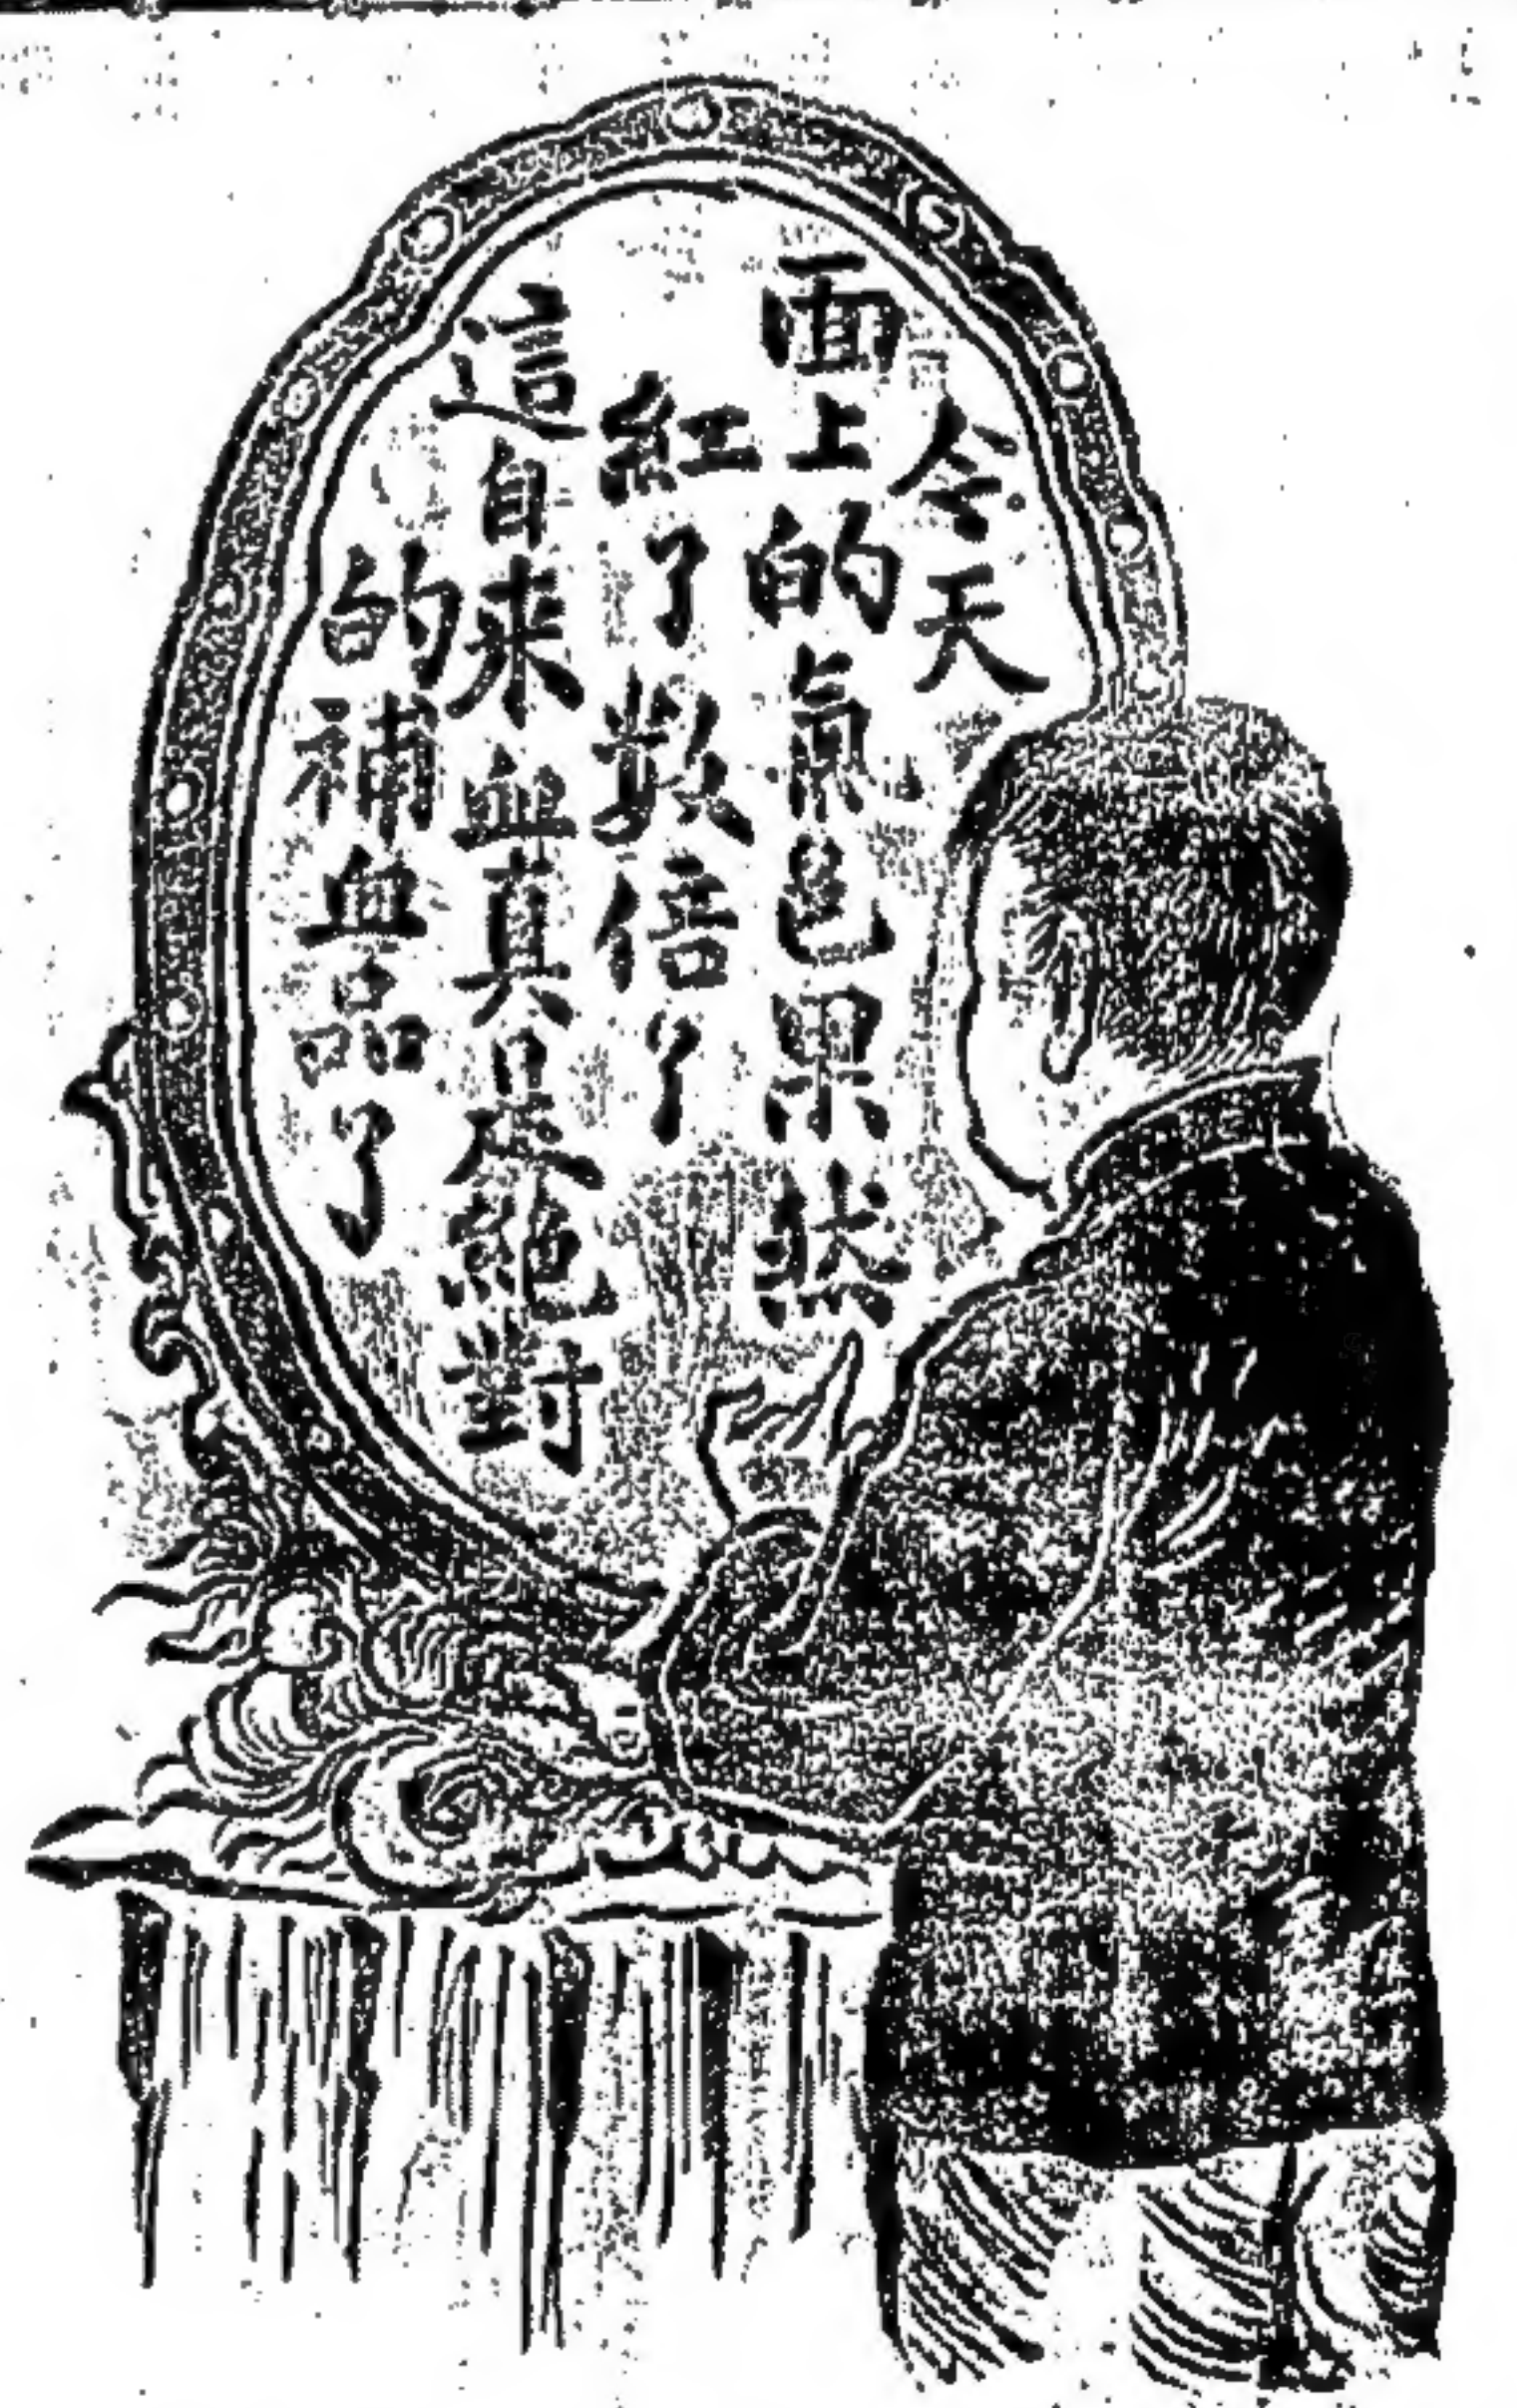 今天
面上的氣色果然
紅了數倍了
這自来血真是絕對
的補血品了